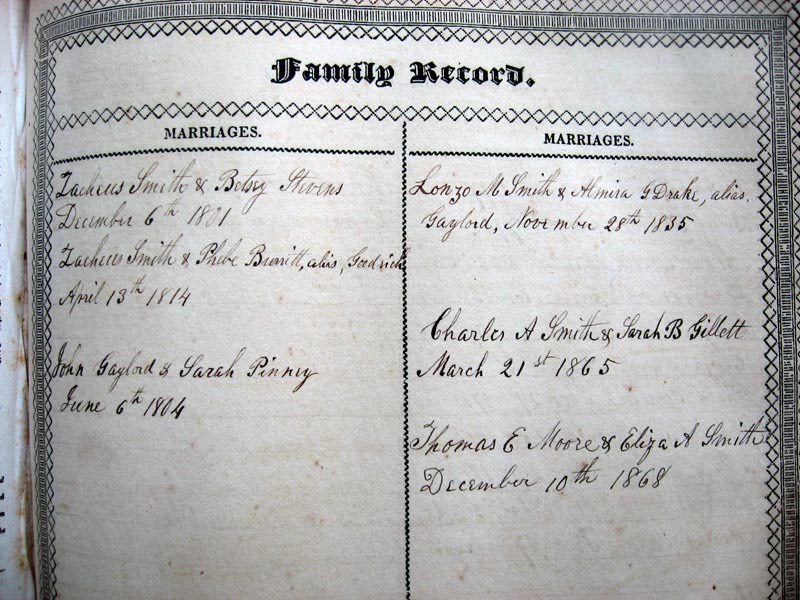 Family Record.
MARRIAGES.
Zacheus Smith & Betsey Stevens
December 6th 1801
Zacheus Smith & Phebe Burritt, alis, Goodrich
April 13th 1814
John Gaylord & Sarah Pinney
June 6th 1804
MARRIAGES.
Lonzo M Smith & Almira G Drake, alias.
Gaylord, November 28th 1835
Charles A Smith & Sarah B Gillett
March 21st 1865
Thomas E Moore & Eliza A Smith
December 10th 1868